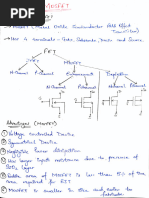 MOSFET
Metal Oxide Semiconductor Field Effect
Transistor
has 4 terminals - Gate, Substrate, Drain and Source.
FET
MOSFET
N-Channel
P-Channel
Enhancement
Depletion
N-Channel
P-Channel
N-Channel
P-Channel
① Voltage Controlled Device
② Symmetrical Device
③ Negligible Power dissipation
④ Very large input resistance due to presence of
SiO₂ layer
⑤ area of MOSFET is less than 15% of the
area required for BJT
⑥ MOSFET is smaller in size and easier to
fabricate.